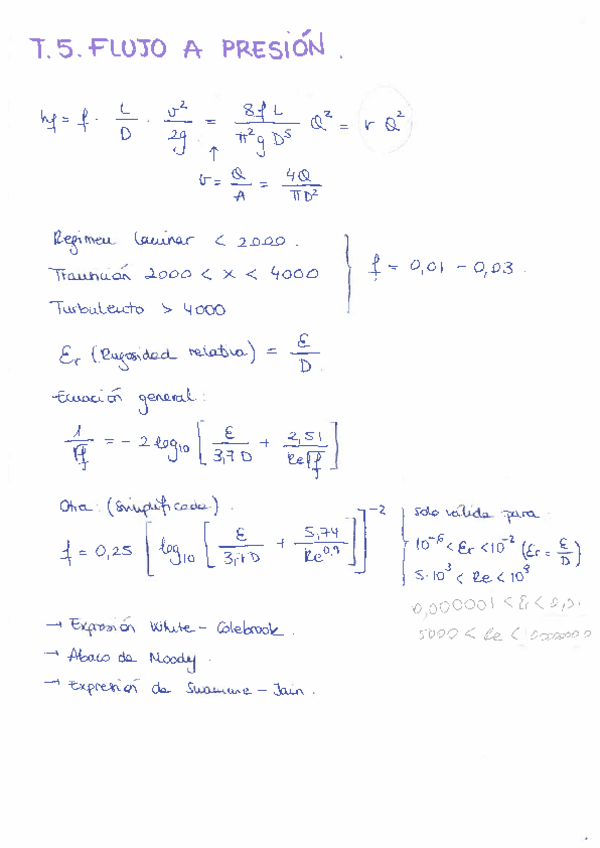 T.5. FLUJO A PRESIÓN.
hf = f · L/D · v²/2g = 8fL/π²gD⁵ Q² = r Q²
↑
v = Q/A = 4Q/πD²
Regimen laminar < 2000.
Transición 2000 < x < 4000
Turbulento > 4000
f = 0,01 - 0,03.
Er (Rugosidad relativa) = ε/D.
Ecuación general:
1/√f = -2 log₁₀ [ε/3,7D + 2,51/Re√f]
Otra: (simplificada).
f = 0,25 [log₁₀ [ε/3,7D + 5,74/Re^0,9]]⁻²
solo válida para
10⁻⁶ < Er < 10⁻² (Er = ε/D)
5·10³ < Re < 10⁸
0,000001 < Er < 0,0.
5000 < Re <
→ Expresión White - Colebrook.
→ Abaco de Moody.
→ Expresión de Swamme - Jain.